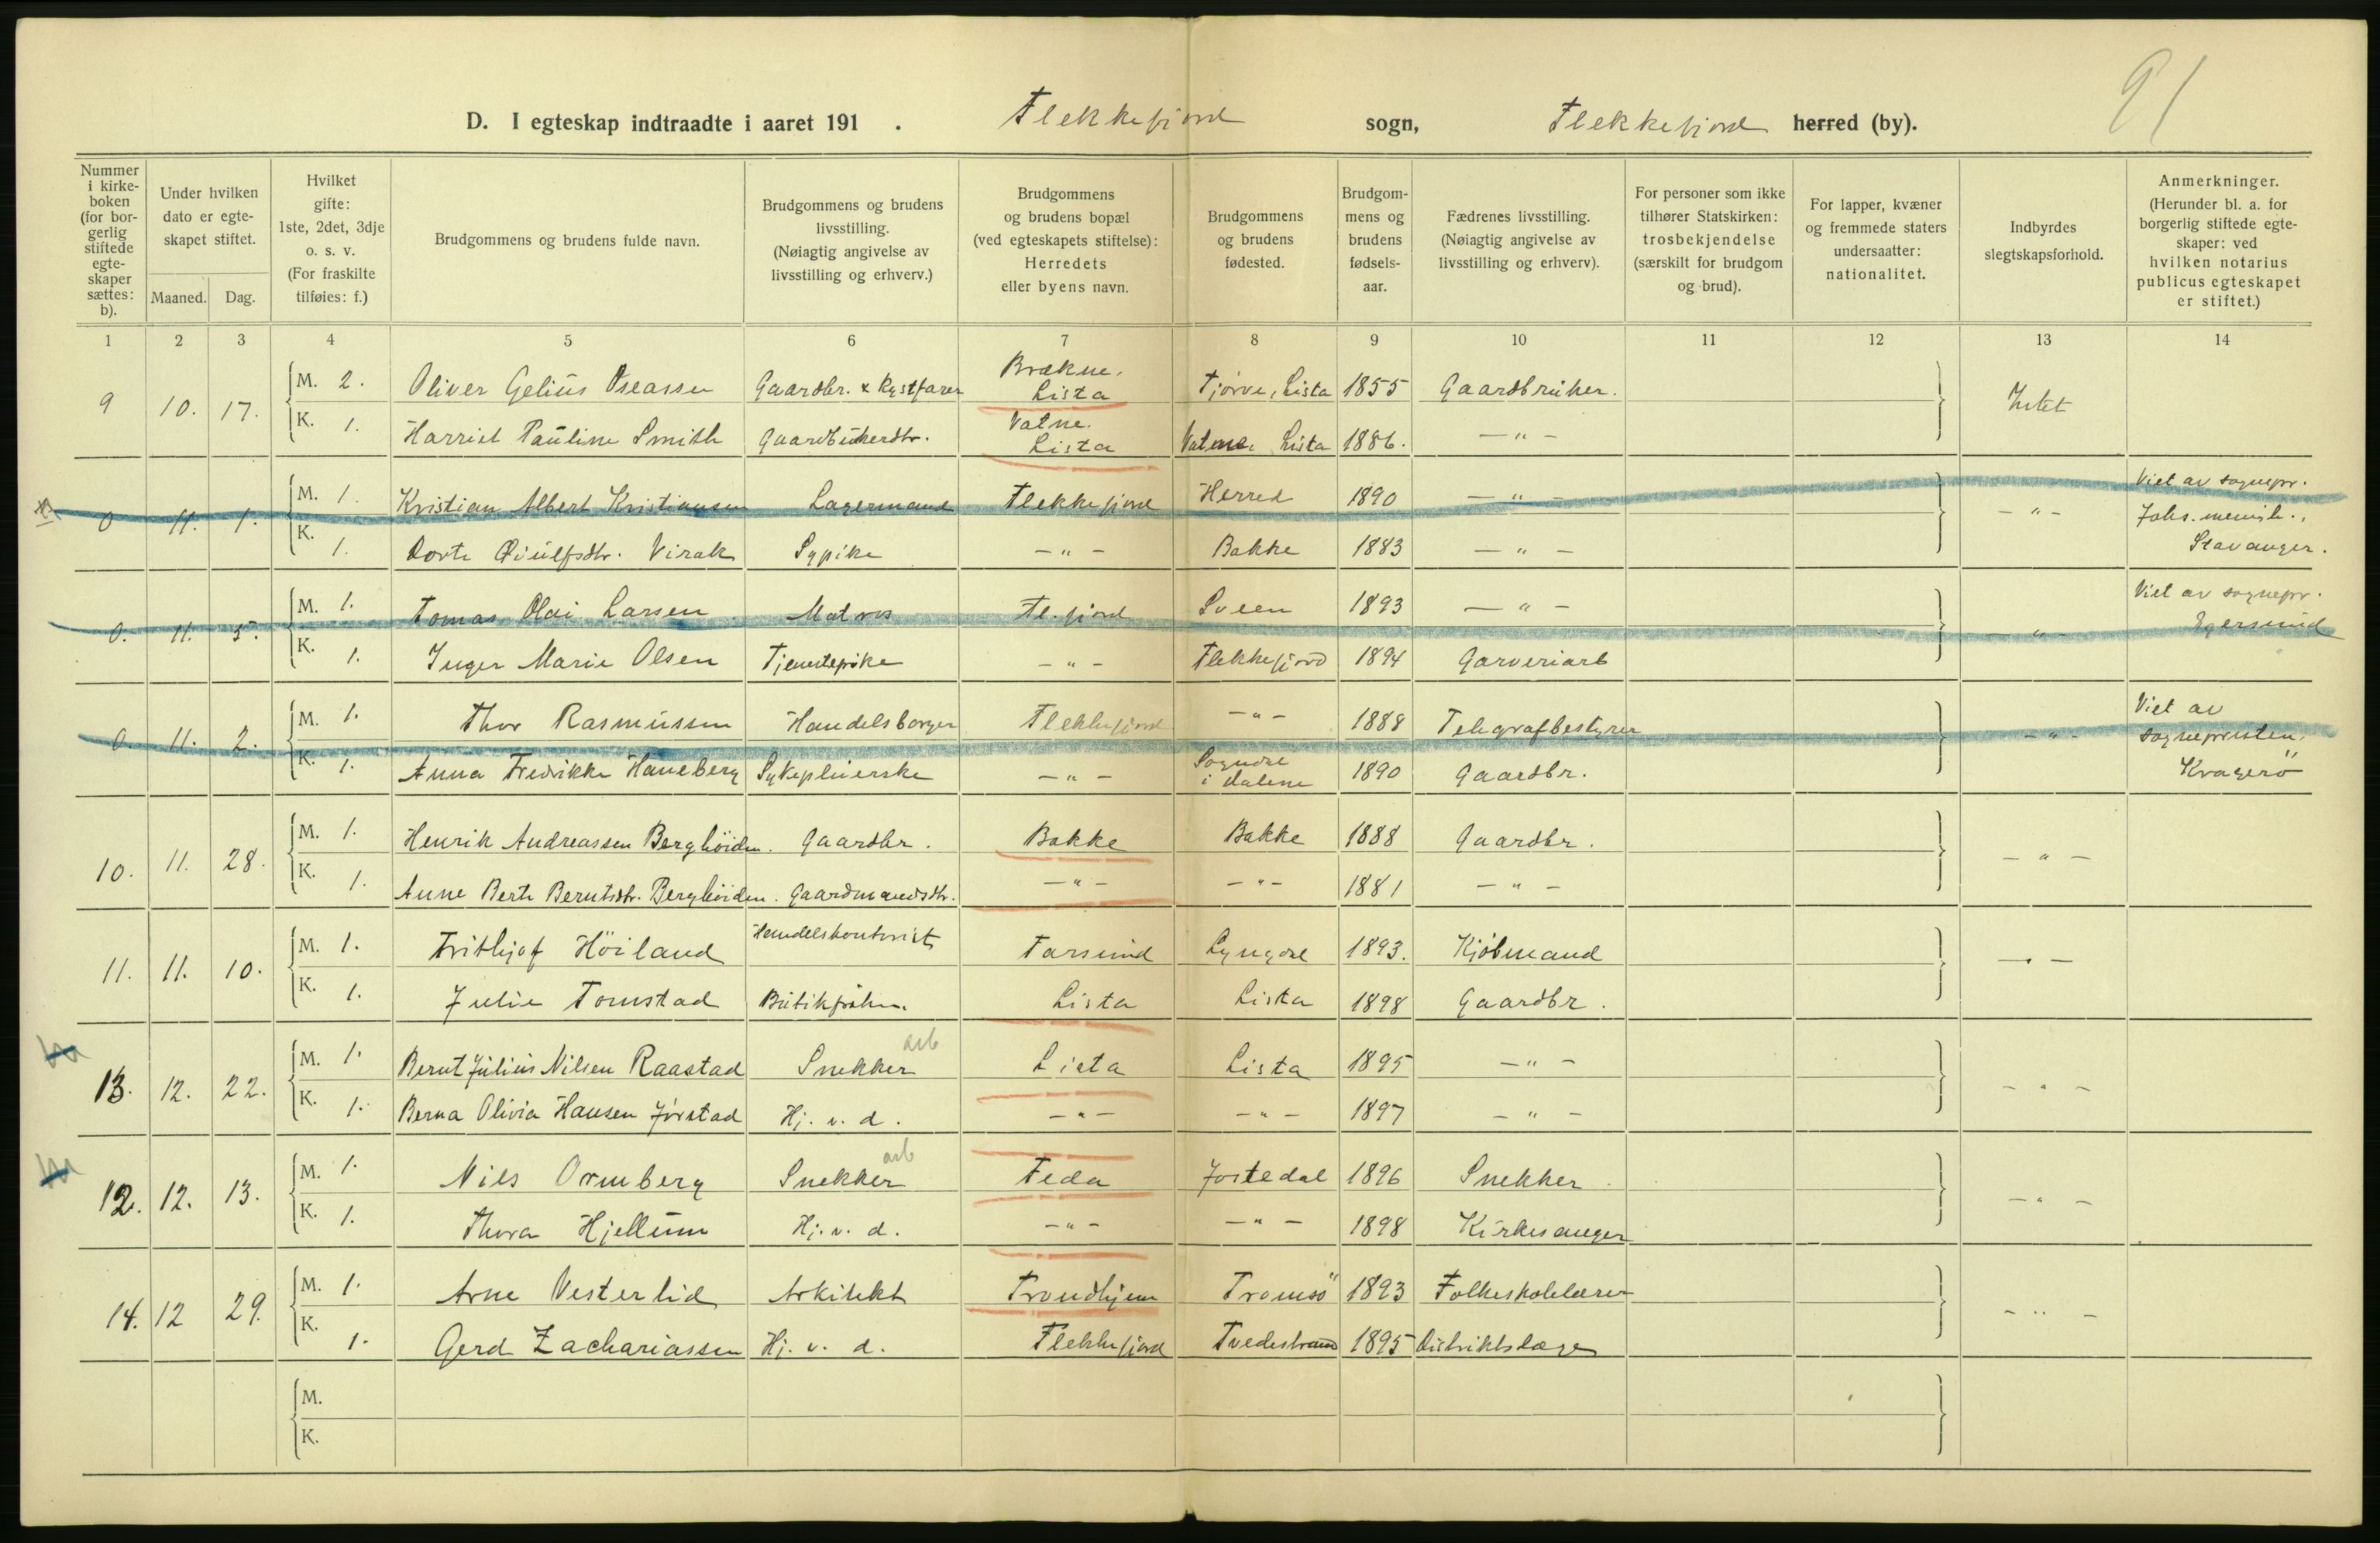 91
D. I egteskap indtraadte i aaret 191 . Flekkefjord sogn, Flekkefjord herred (by).
Nummer i kirkeboken (for borgerlig stiftede egteskaper sættes: b).
Under hvilken dato er egteskapet stiftet.
Maaned. Dag.
Hvilket gifte: 1ste, 2det, 3dje o. s. v. (For fraskilte tilføies: f.)
Brudgommens og brudens fulde navn.
Brudgommens og brudens livsstilling. (Nøiagtig angivelse av livsstilling og erhverv.)
Brudgommens og brudens bopæl (ved egteskapets stiftelse): Herredets eller byens navn.
Brudgommens og brudens fødested.
Brudgommens og brudens fødselsaar.
Fædrenes livsstilling. (Nøiagtig angivelse av livsstilling og erhverv).
For personer som ikke tilhører Statskirken: trosbekjendelse (særskilt for brudgom og brud).
For lapper, kvæner og fremmede staters undersaatter: nationalitet.
Indbyrdes slegtskapsforhold.
Anmerkninger. (Herunder bl. a. for borgerlig stiftede egteskaper: ved hvilken notarius publicus egteskapet er stiftet.)
1 2 3 4 5 6 7 8 9 10 11 12 13 14
9 10. 17. M. 2. Oliver Gelius Oseassen Gaardbr. & Kystfarer Brækne. Lista Tjørve, Lista 1855 Gaardbruker. Intet
K. 1. Harriet Pauline Smith Gaardbrukerdtr. Vatne. Lista Vatne, Lista 1886. —"—
0 11. 1. M. 1. Kristian Albert Kristiansen Lagermand Flekkefjord Herred 1890 —"— —"— Viet av sognepr.
Johs. menigh.,
K. 1. Dorte Virak Sypike —"— Bakke 1883 —"— Stavanger.
0. 11. 5. M. 1. Tomas Olai Larsen Matros Fl.fjord Sveen 1893 —"— —"— Viet av sognepr.
Egersund
K. 1. Inger Marie Olsen Tjenestepike —"— Flekkefjord 1894 Garveriarb
0. 11. 2. M. 1. Thor Rasmussen Handelsborger Flekkefjord —"— 1888 Telegrafbestyrer —"— Viet av
sognepresten,
K. 1. Anna Fredrikke Haneberg Sykepleierske —"— Sogndal i Dalene 1890 Gaardbr. Kragerö
10. 11. 28. M. 1. Henrik Andreassen Berghöiden. Gaardbr. Bakke Bakke 1888 Gaardbr. —"—
K. 1. Anne Berte Berntsdtr. Berghöiden. Gaardmandsdtr. —"— —"— 1881 —"—
11. 11. 10. M. 1. Frithjof Höiland Handelskontorist Farsund Lyngdal 1893. Kjöbmand —"—
K. 1. Julie Tomstad Butikfrøken. Lista Lista 1898 Gaardbr.
13. 12. 22. M. 1. Bernt Julius Nilsen Raastad Snekker arb Lista Lista 1895 —"— —"—
K. 1. Berna Olivia Hansen Jørstad Hj. v. d. —"— —"— 1897 —"—
12. 12. 13. M. 1. Nils Ormberg Snekker arb Feda Jostedal 1896 Snekker —"—
K. 1. Thora Hjellum Hj. v. d. —"— —"— 1898 Kirkesanger
14. 12 29. M. 1. Arne Vesterlid Arkitekt Trondhjem Tromsö 1893 Folkeskolelærer —"—
K. 1. Gerd Zachariassen Hj. v. d. Flekkefjord Tvedestrand 1895 Distriktslæge
M.
K.